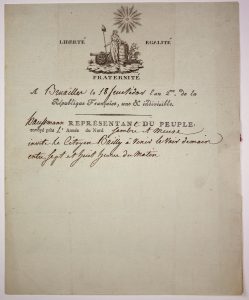 LIBERTÉ EGALITÉ
FRATERNITÉ
A Bruxelles le 18 fructidor l'an 2me. de la
République Française, une & indivisible.
Haussmann REPRÉSENTANT DU PEUPLE,
envoyé près L' Armée du Nord Sambre et Meuse
invite le Citoyen Bailly à venir le voir demain
entre sept et huit heures du matin